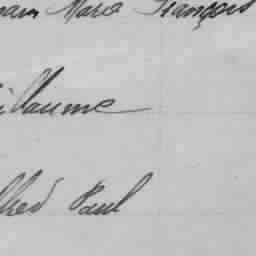 Marc François
illaume
lfred Paul